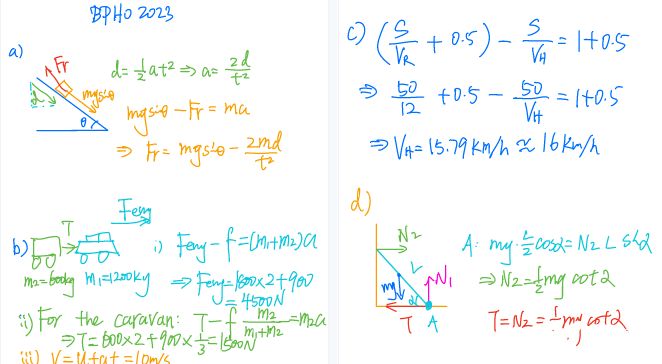 BPHO 2023
a)
Fr
d
mgsinθ
θ
d = 1/2 at² ⇒ a = 2d/t²
mgsinθ - Fr = ma
⇒ Fr = mgsinθ - 2md/t²
b)
T
Feng
m2=600kg m1=1200kg
i) Feng - f = (m1+m2)a
⇒ Feng = 1800×2+900
= 4500N
ii) For the caravan: T - f m2/(m1+m2) = m2a
⇒ T = 600×2 + 900×1/3 = 1500N
iii) V = u+at = 10m/s
c) (S/VR + 0.5) - S/VH = 1+0.5
⇒ 50/12 + 0.5 - 50/VH = 1+0.5
⇒ VH = 15.79 km/h ≈ 16km/h
d)
N2
L
mg
N1
α
T
A
A: mg·L/2 cosα = N2 L sinα
⇒ N2 = 1/2 mg cotα
T = N2 = 1/2 mg cotα